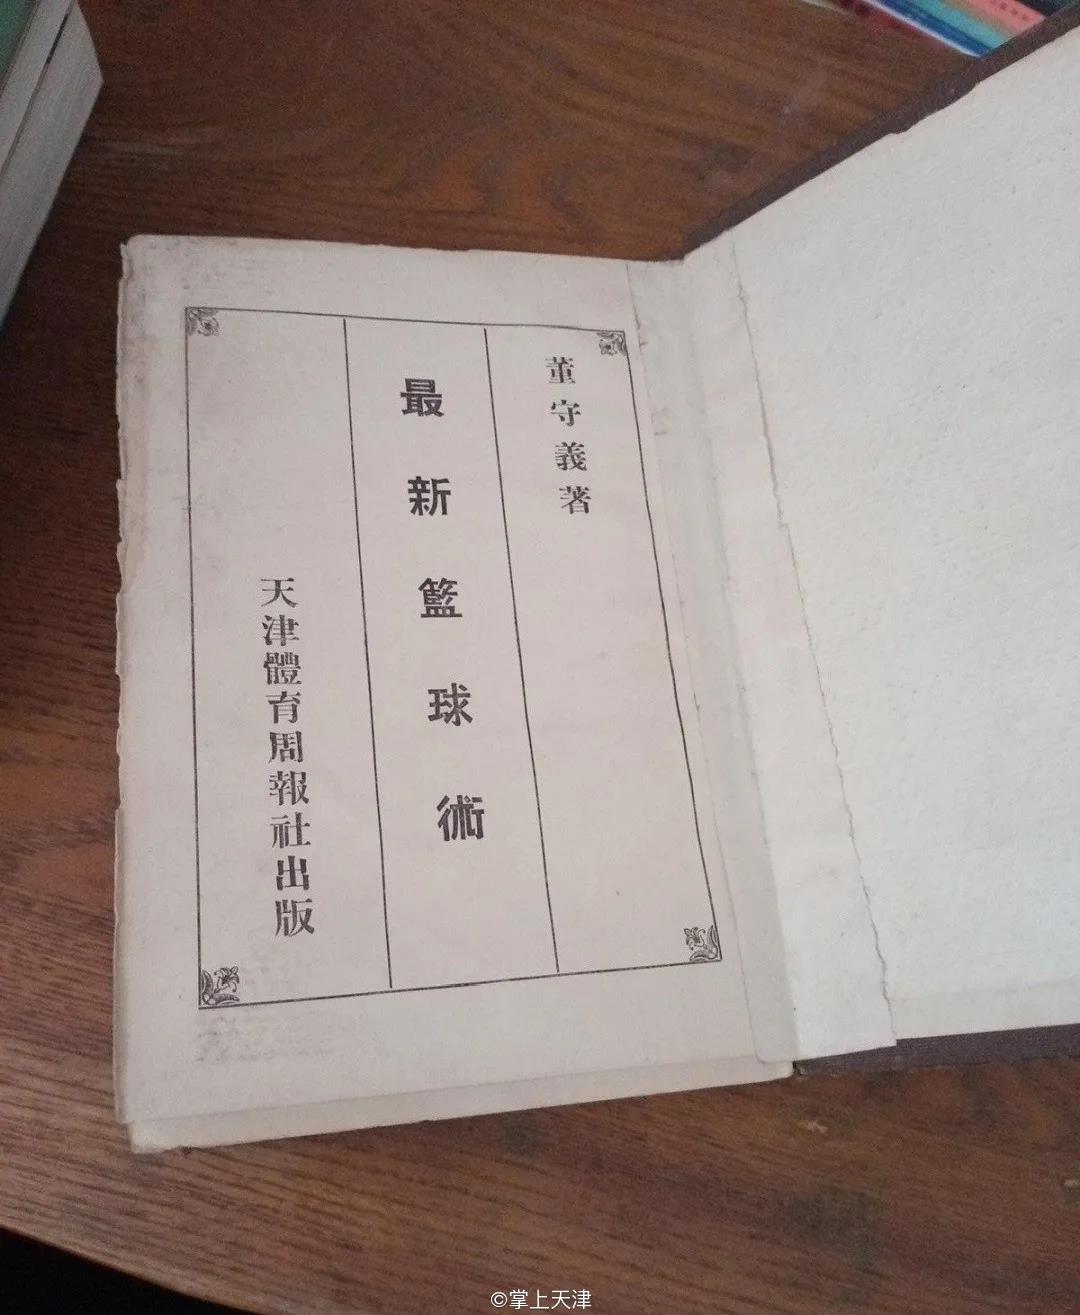 董守義著
最新籃球術
天津體育周報社出版
©掌上天津